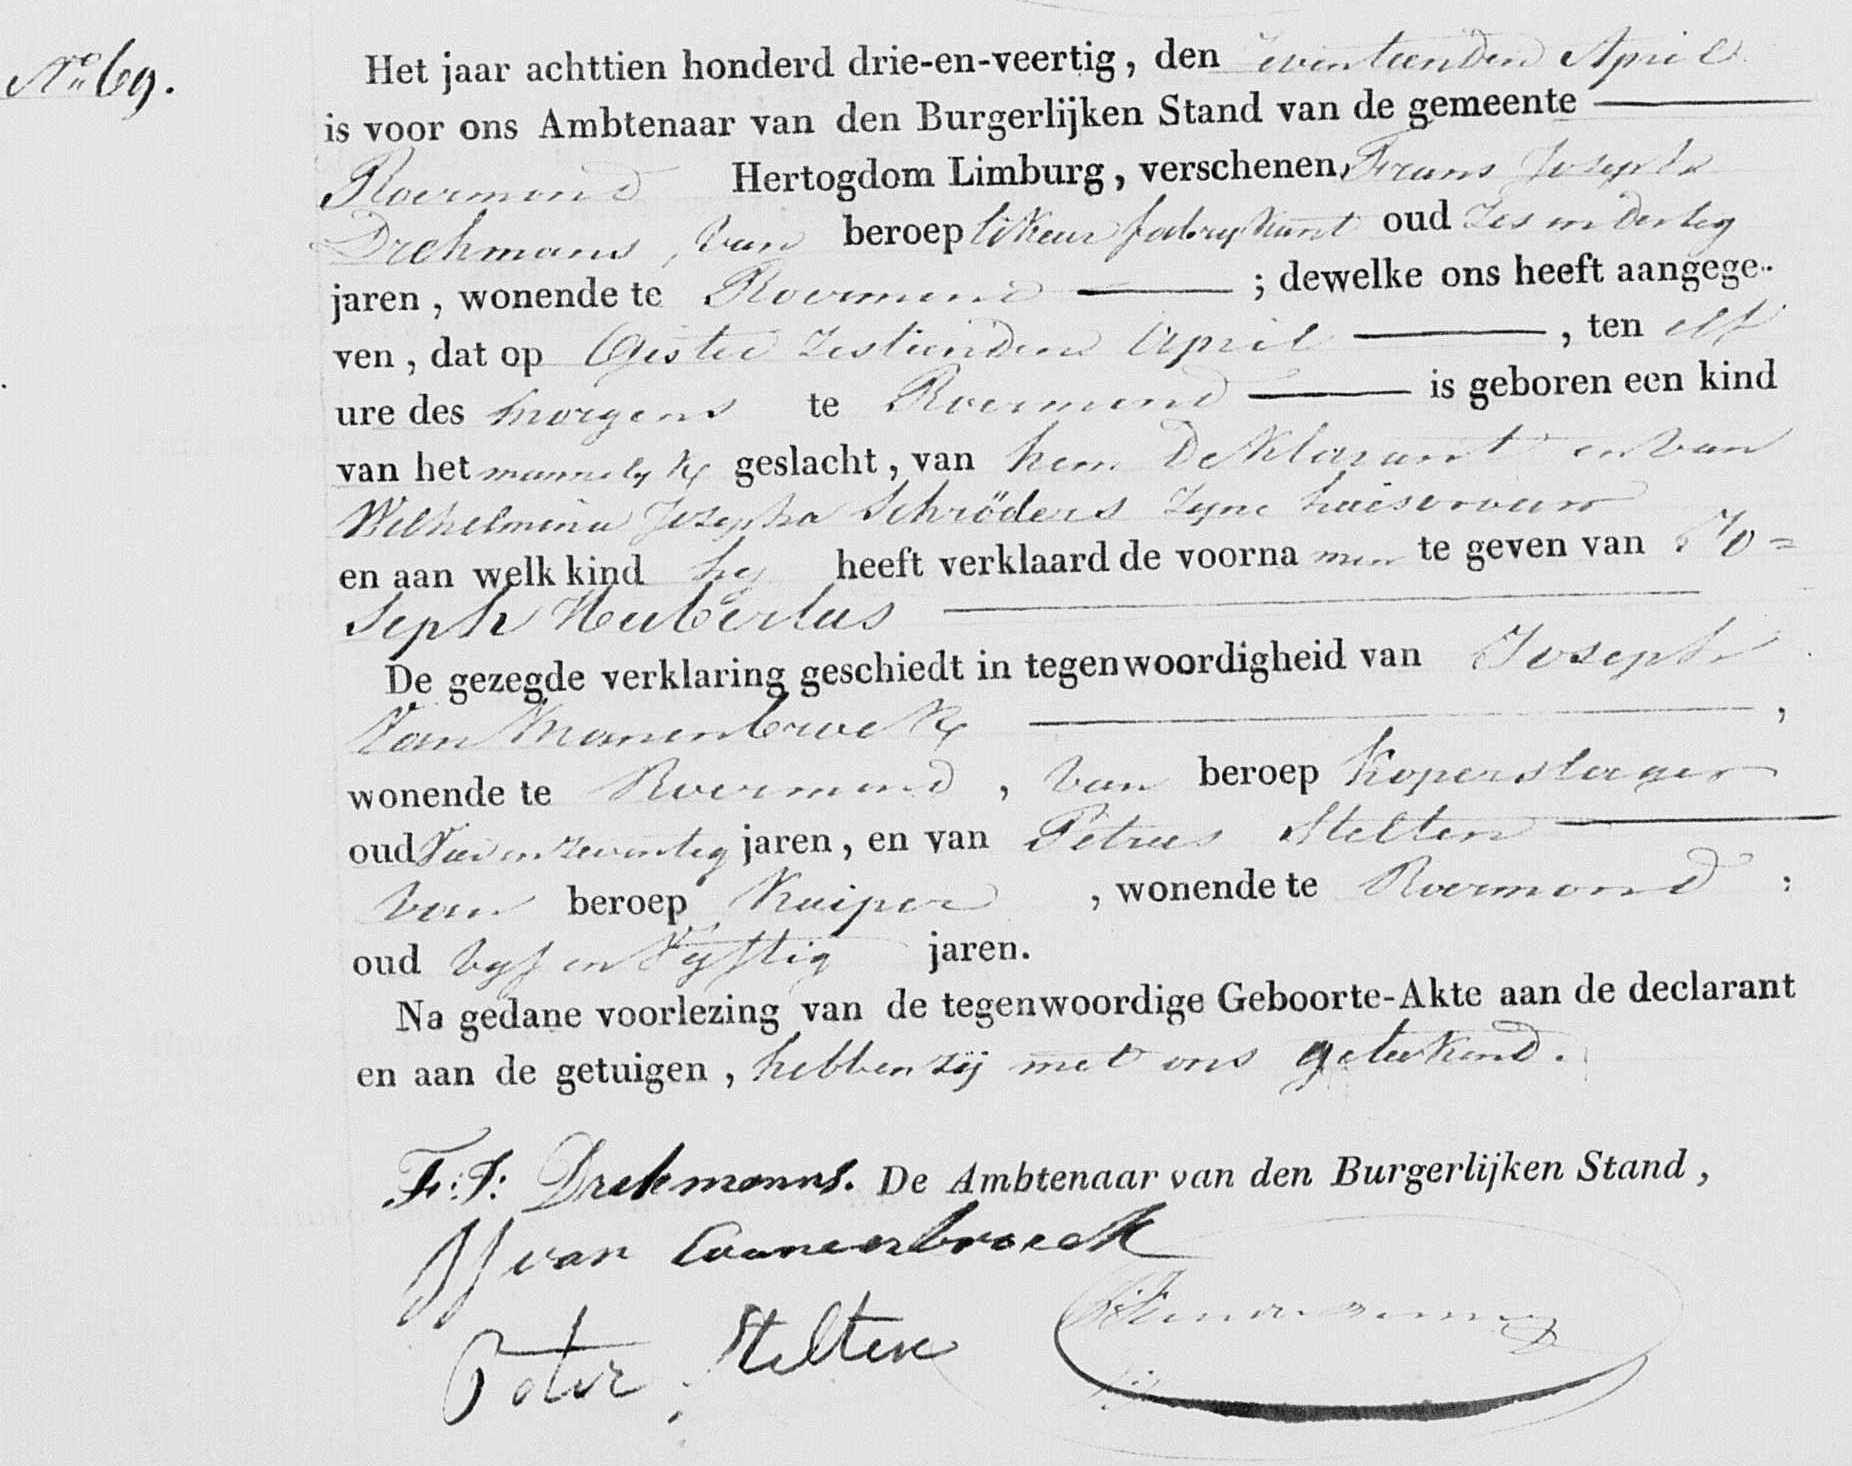 N° 69.
Het jaar achttien honderd drie-en-veertig, den zeventienden April
is voor ons Ambtenaar van den Burgerlijken Stand van de gemeente
Roermond Hertogdom Limburg, verschenen, Frans Joseph
Drehmans, van beroep likeur fabrykant oud zes en dertig
jaren, wonende te Roermond ; dewelke ons heeft aangege-
ven, dat op Gister zestienden April , ten elf
ure des morgens te Roermond is geboren een kind
van het mannelyk geslacht, van hem Deklarant en van
Wilhelmina Josepha Schröders zyne huisvrouw
en aan welk kind hy heeft verklaard de voornamen te geven van Jo=
seph Hubertus
De gezegde verklaring geschiedt in tegenwoordigheid van Joseph
Van , 
wonende te Roermond, van beroep Koperslager
oud en zeventig jaren, en van Petrus Stelten
van beroep Kuiper , wonende te Roermond :
oud vyf en vyftig jaren.
Na gedane voorlezing van de tegenwoordige Geboorte-Akte aan de declarant
en aan de getuigen, hebben zij met ons geteekend.
F: J: Drehmans. De Ambtenaar van den Burgerlijken Stand,
van
Peter Stelten